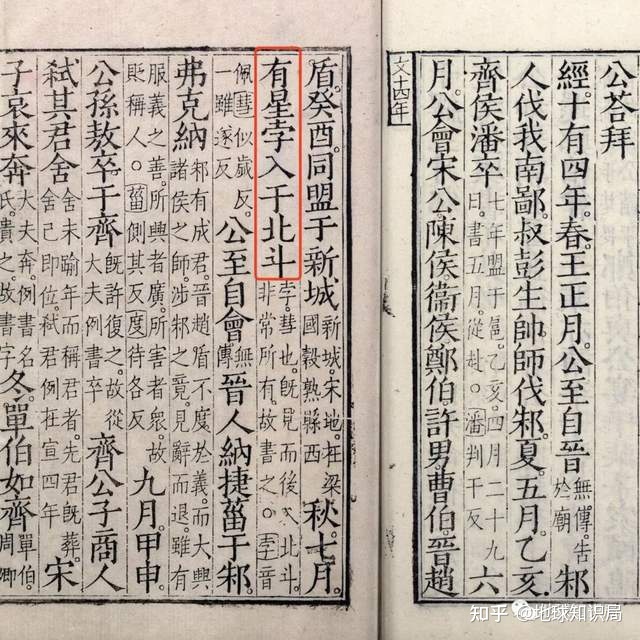 公荅拜
經十有四年。春。王正月。公至自晉無傳。告於廟邾
人伐我南鄙。叔彭生帥師伐邾。夏。五月。乙亥。
齊侯潘卒七年盟于扈。乙亥。四月二十九日。書五月。從赴。潘判干反六
月。公會宋公。陳侯。衞侯。鄭伯。許男。曹伯。晉趙
文十四年
盾。癸酉。同盟于新城新城。宋地。在梁國穀熟縣西秋。七月。
有星孛入于北斗孛。彗也。既見而後入北斗。非常所有。故書之。孛音
佩。彗似歲反。一雖遂反公至自會無傳晉人納捷菑于邾。
弗克納邾有成君。晉趙盾不度於義。而大興諸侯之師。涉邾之竟。見辭而退。雖有
服義之善。所興者廣。所害者衆。故貶稱人。菑側其反度待各反九月。甲申。
公孫敖卒于齊既許復之。故從大夫例書卒齊公子商人
弒其君舍舍未踰年而稱君者。先君既葬。舍已即位。弒君例在宣四年宋
子哀來奔大夫奔。例書名氏。貴之。故書字冬。單伯如齊單伯。周卿
知乎 @地球知识局